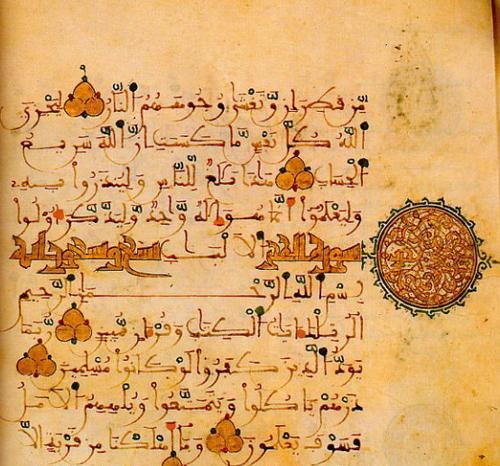 مِّن قَطِرَانٍ وَتَغْشَىٰ وُجُوهَهُمُ النَّارُ لِيَجْزِيَ
اللَّهُ كُلَّ نَفْسٍ مَّا كَسَبَتْ إِنَّ اللَّهَ سَرِيعُ
الْحِسَابِ هَٰذَا بَلَٰغٌ لِّلنَّاسِ وَلِيُنذَرُوا بِهِ
وَلِيَعْلَمُوا أَنَّمَا هُوَ إِلَٰهٌ وَٰحِدٌ وَلِيَذَّكَّرَ أُولُوا
سورة الحجر الْأَلْبَٰبِ تسع وتسعون اية
بِسْمِ اللَّهِ الرَّحْمَٰنِ الرَّحِيمِ
الر تِلْكَ ءَايَٰتُ الْكِتَٰبِ وَقُرْءَانٍ مُّبِينٍ رُّبَمَا
يَوَدُّ الَّذِينَ كَفَرُوا لَوْ كَانُوا مُسْلِمِينَ
ذَرْهُمْ يَأْكُلُوا وَيَتَمَتَّعُوا وَيُلْهِهِمُ الْأَمَلُ
فَسَوْفَ يَعْلَمُونَ وَمَا أَهْلَكْنَا مِن قَرْيَةٍ إِلَّا